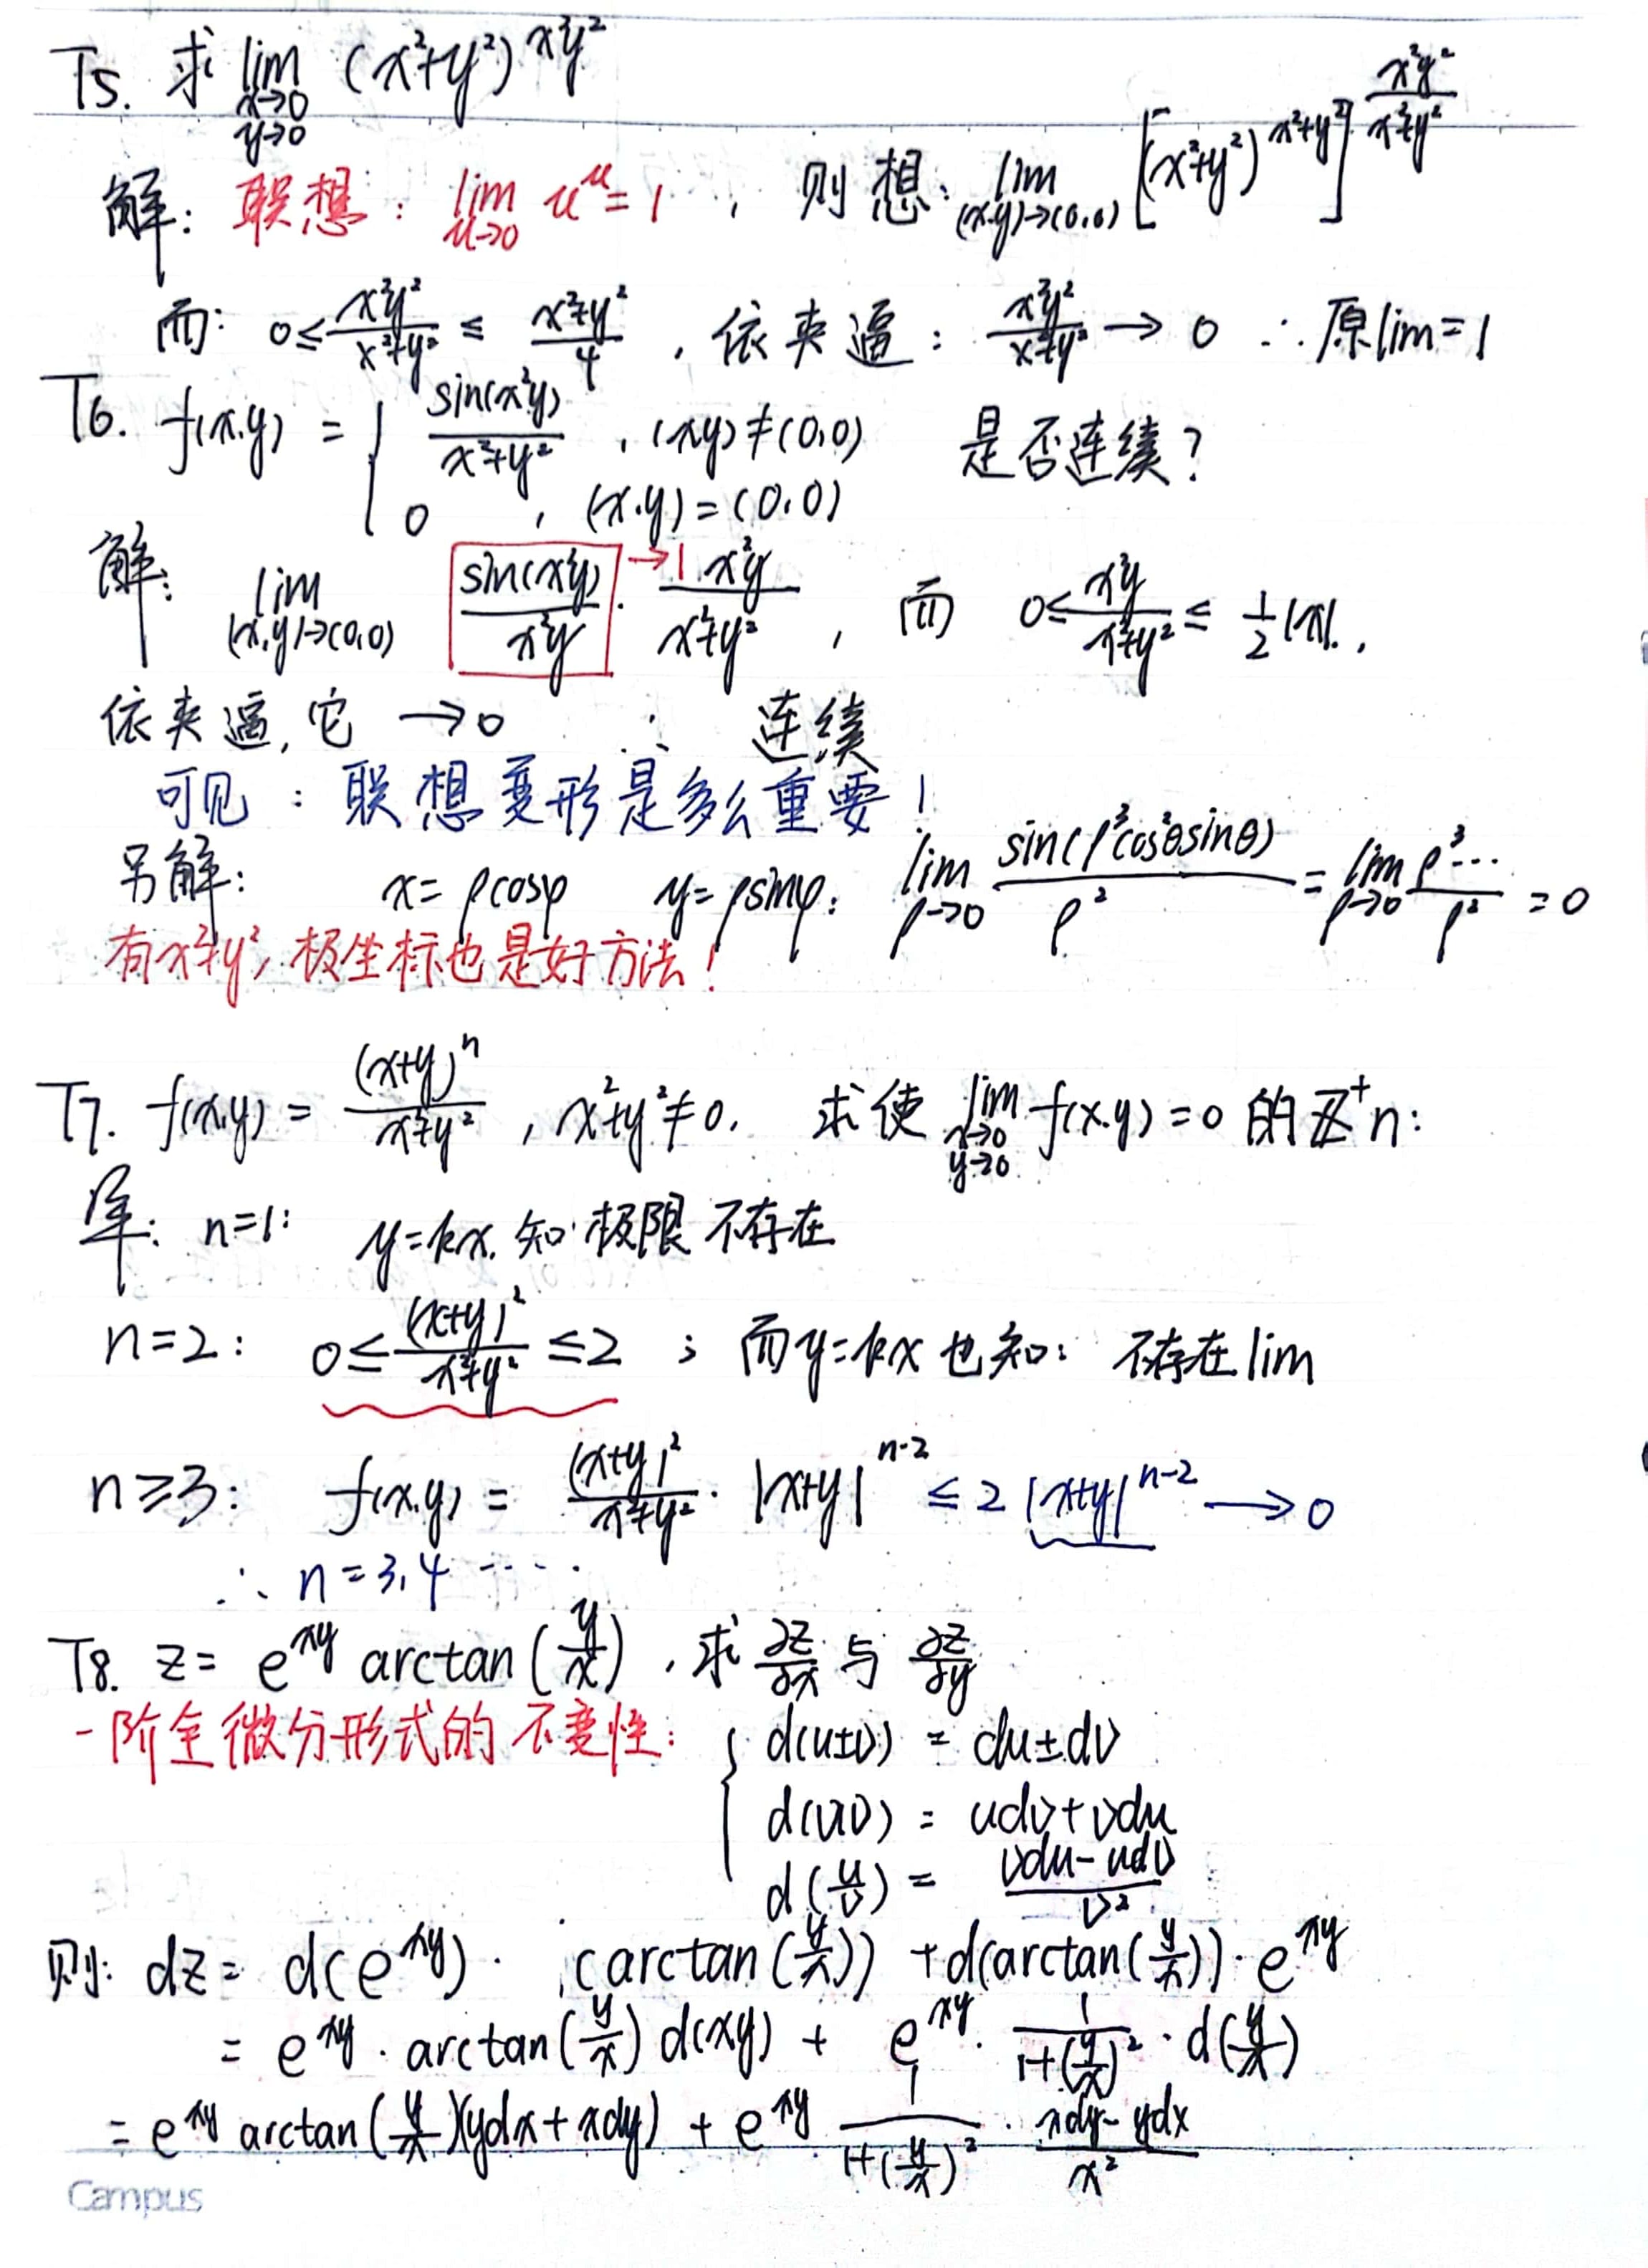 T5. 求 lim (x²+y²)^{x²y²}
x→0
y→0
解: 联想: lim_{u→0} u^u = 1 , 则想: lim_{(x,y)→(0,0)} [(x²+y²)^{x²+y²}]^{x²y²/(x²+y²)}
而: 0 ≤ x²y²/(x²+y²) ≤ (x²+y²)/4 , 依夹逼: x²y²/(x²+y²) → 0 ∴ 原lim = 1
T6. f(x,y) = { sin(x²y)/(x²+y²) , (x,y)≠(0,0) 是否连续?
0 , (x,y)=(0,0)
解: lim_{(x,y)→(0,0)} sin(x²y)/(x²y) →1 · x²y/(x²+y²) , 而 0 ≤ x²y/(x²+y²) ≤ 1/2 |x|.,
依夹逼, 它 → 0 ∴ 连续
可见: 联想变形是多么重要!
另解: x=ρcosφ y=ρsinφ: lim_{ρ→0} sin(ρ³cos²θsinθ)/ρ² = lim_{ρ→0} ρ³···/ρ² = 0
有x²+y², 极坐标也是好方法!
T7. f(x,y) = (x+y)^n/(x²+y²) , x²+y²≠0, 求使 lim_{x→0 y→0} f(x,y) = 0 的 Z⁺ n:
解: n=1: y=kx, 知极限不存在
n=2: 0 ≤ (x+y)²/(x²+y²) ≤ 2 ; 而y=kx也知: 不存在lim
n≥3: f(x,y) = (x+y)²/(x²+y²) · |x+y|^{n-2} ≤ 2|x+y|^{n-2} → 0
∴ n=3,4 ·····
T8. z = e^{xy} arctan(y/x) , 求 ∂z/∂x 与 ∂z/∂y
一阶全微分形式的不变性: { d(u±v) = du±dv
d(uv) = udv+vdu
d(u/v) = (vdu-udv)/v²
则: dz = d(e^{xy}) · (arctan(y/x)) + d(arctan(y/x)) · e^{xy}
= e^{xy} · arctan(y/x) d(xy) + e^{xy} · 1/(1+(y/x)²) · d(y/x)
= e^{xy} arctan(y/x)(ydx+xdy) + e^{xy} 1/(1+(y/x)²) · (xdy-ydx)/x²
Campus